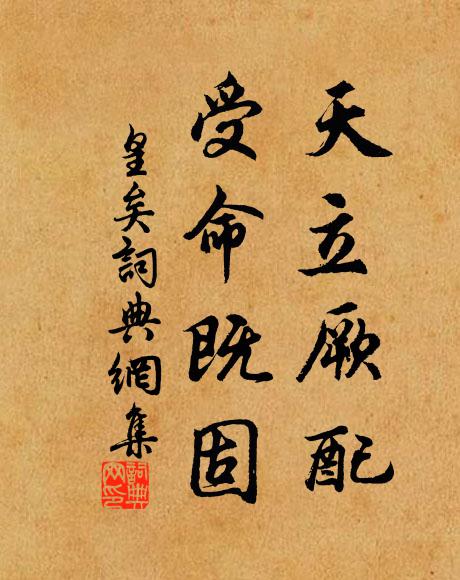 天立厥配
受命既固
皇矣詞典網集
詞典
网印